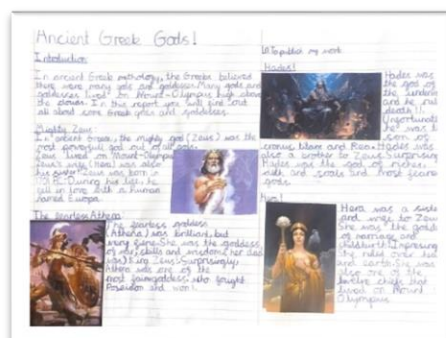 Ancient Greek Gods!
Introduction
In ancient Greek mythology, the Greeks believed
there were many gods and goddesses. Many gods and
goddesses lived on Mount-Olympus high above
the clouds. In this report you will find out
all about some Greek gods and goddesses.
Mighty Zeus
In ancient Greece, the mighty god (Zeus) was the
most powerful god out of all gods.
Zeus lived on Mount-Olympus
Zeus's wife (Hera) was also
his sister. Zeus was born in
During his life, he
fell in love with a human
named Europa.
The fearless Athena
The fearless goddess
(Athena) was brilliant, but
She was the goddess
of war, skills and wisdom. Her dad
was King Zeus. Surprisingly,
Athena was one of the
most goddess. who fought
Poseidon and won!
LO To publish my work
Hades!
Hades was
the god of
the underworld
and he
death!!
Unfortunately
he was
son of
cronus titans and Rea. Hades was
also a brother to Zeus. Surprisingly
Hades was the god of riches
and souls and most feared
gods.
Hera!
Hera was a sister
and wife to Zeus
She was the goddess
of marriage and
childbirth. Impressively
she rules over
and earth. She was
also one of the
twelve chiefs that
lived on Mount
Olympus